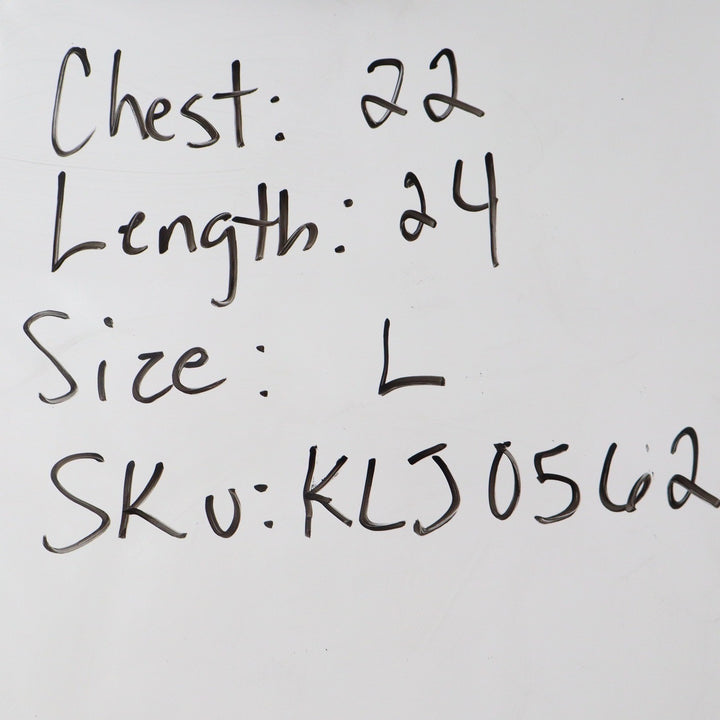 Chest: 22
Length: 24
Size: L
SKU: KLJ0562